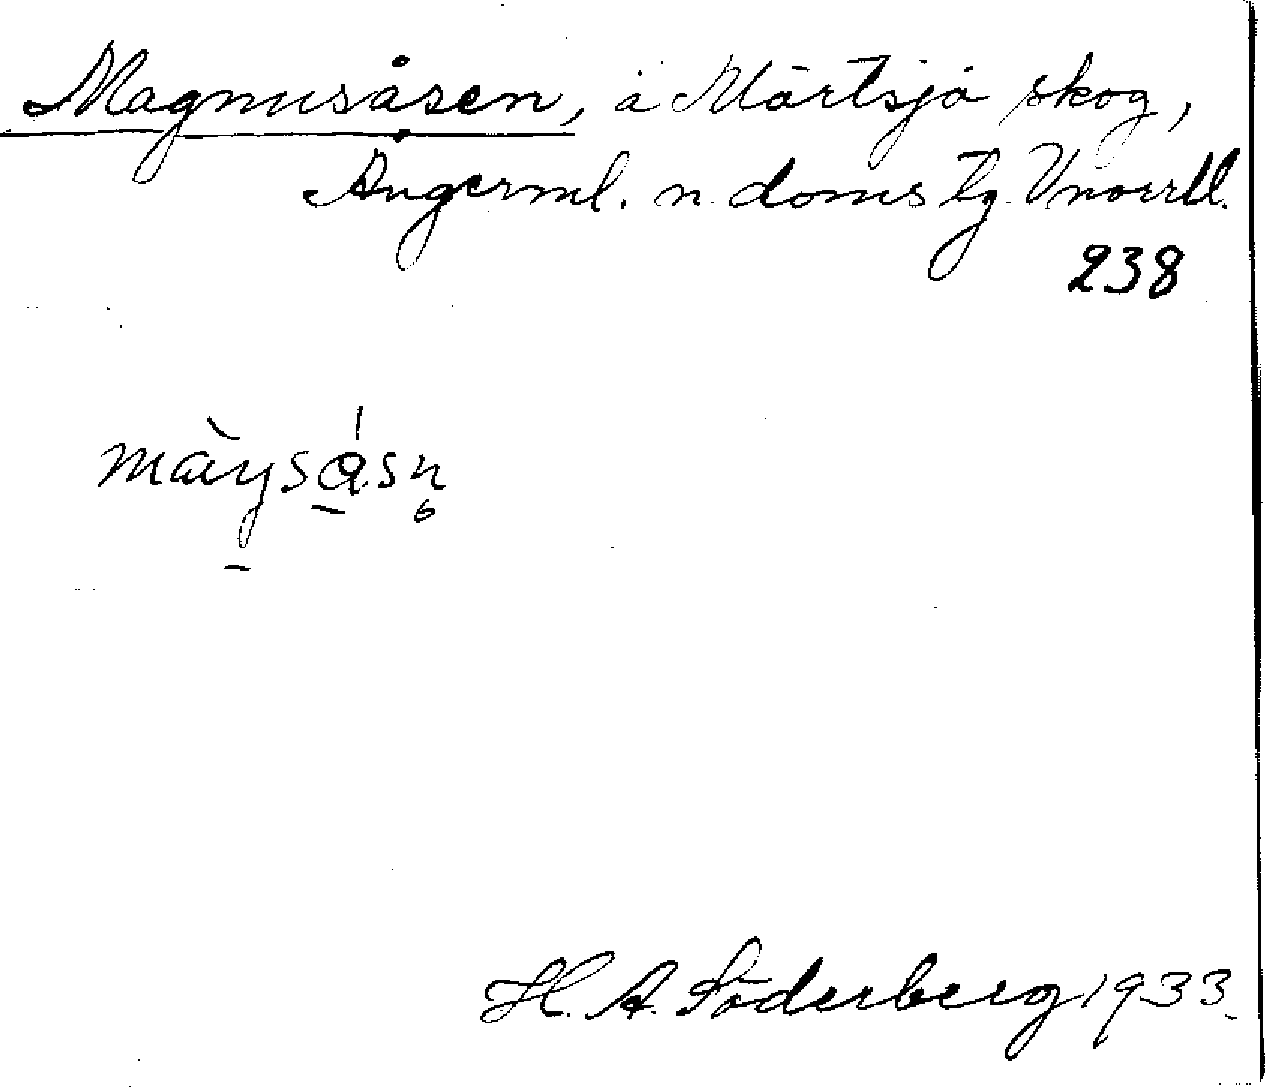 Magnusåsen, å Mårtsjö skog,
Ångerml. n. doms tg. Vnorrl.
238
màŋsásn̥
H. A. Söderberg 1933.